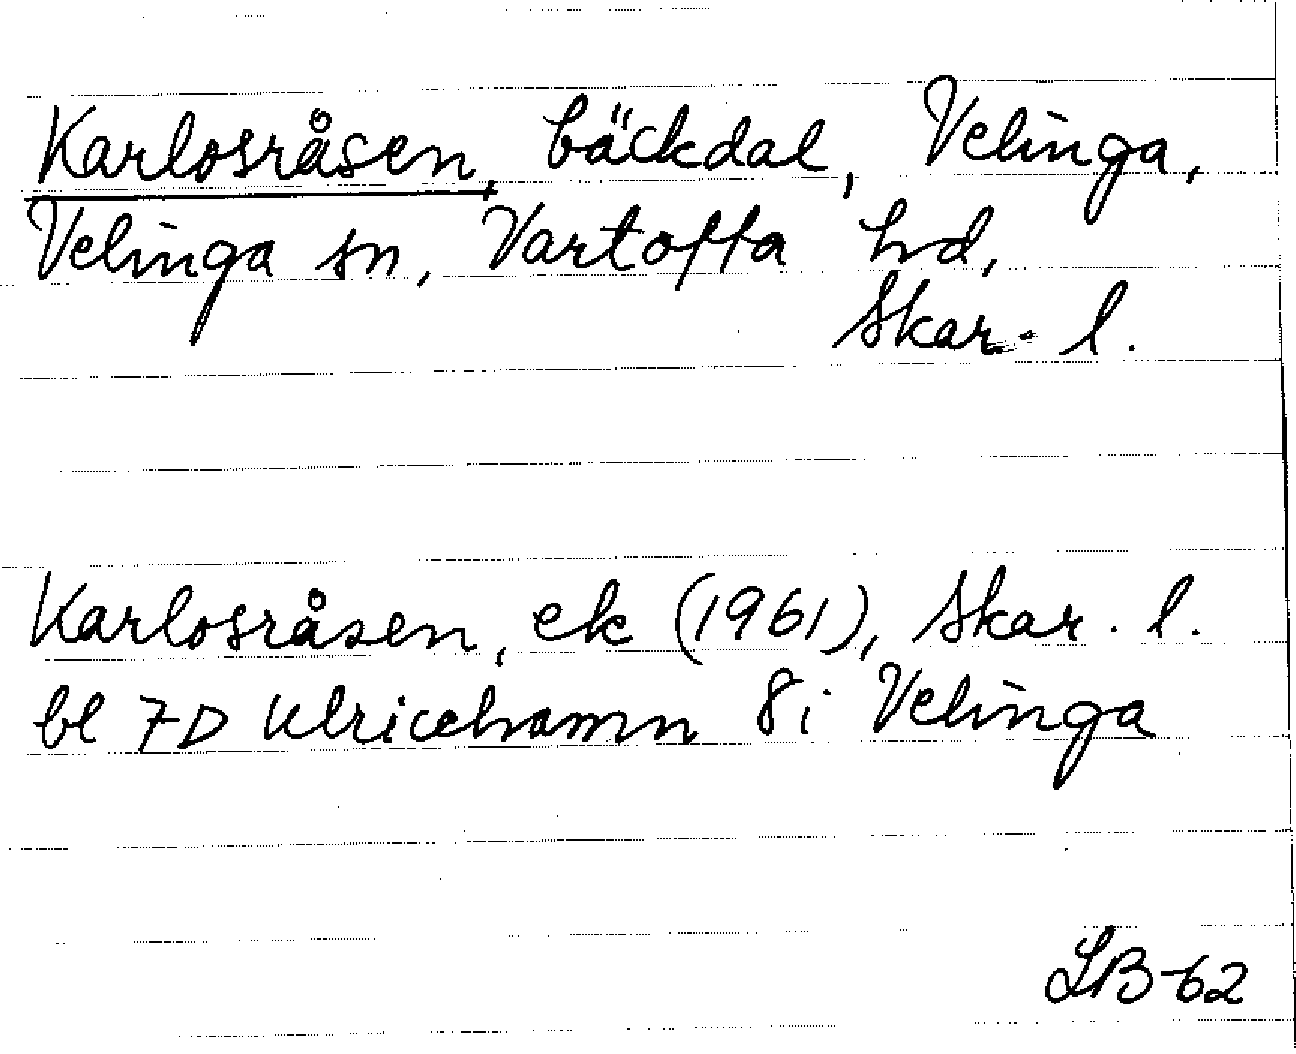 Karlosråsen, bäckdal, Velinga,
Velinga sn, Vartofta hd,
Skar. l.
Karlosråsen, ek (1961), Skar. l.
bl 7D Ulricehamn 8i Velinga
LB-62